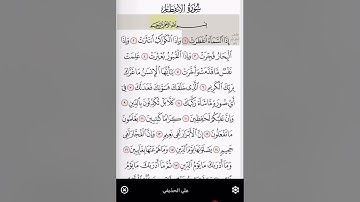 سُورَةُ الانفِطَارِ
بِسْمِ ٱللَّهِ ٱلرَّحْمَٰنِ ٱلرَّحِيمِ
إِذَا ٱلسَّمَآءُ ٱنفَطَرَتْ ١ وَإِذَا ٱلْكَوَاكِبُ ٱنتَثَرَتْ ٢ وَإِذَا
ٱلْبِحَارُ فُجِّرَتْ ٣ وَإِذَا ٱلْقُبُورُ بُعْثِرَتْ ٤ عَلِمَتْ
نَفْسٌ مَّا قَدَّمَتْ وَأَخَّرَتْ ٥ يَٰٓأَيُّهَا ٱلْإِنسَٰنُ مَا غَرَّكَ
بِرَبِّكَ ٱلْكَرِيمِ ٦ ٱلَّذِى خَلَقَكَ فَسَوَّىٰكَ فَعَدَلَكَ ٧ فِىٓ
أَىِّ صُورَةٍ مَّا شَآءَ رَكَّبَكَ ٨ كَلَّا بَلْ تُكَذِّبُونَ بِٱلدِّينِ ٩
وَإِنَّ عَلَيْكُمْ لَحَٰفِظِينَ ١٠ كِرَامًا كَٰتِبِينَ ١١ يَعْلَمُونَ
مَا تَفْعَلُونَ ١٢ إِنَّ ٱلْأَبْرَارَ لَفِى نَعِيمٍ ١٣ وَإِنَّ ٱلْفُجَّارَ لَفِى
جَحِيمٍ ١٤ يَصْلَوْنَهَا يَوْمَ ٱلدِّينِ ١٥ وَمَا هُمْ عَنْهَا بِغَآئِبِينَ ١٦
وَمَآ أَدْرَىٰكَ مَا يَوْمُ ٱلدِّينِ ١٧ ثُمَّ مَآ أَدْرَىٰكَ مَا يَوْمُ
علي الحذيفي